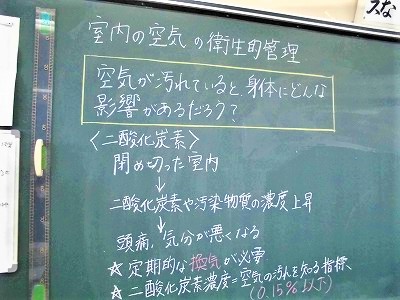 室内の空気の衛生的管理
空気が汚れていると、身体にどんな
影響があるだろう?
<二酸化炭素>
閉め切った室内
↓
二酸化炭素や汚染物質の濃度上昇
↓
頭痛、気分が悪くなる
☆定期的な換気が必要
☆二酸化炭素濃度=空気の汚れを知る指標
(0.15%以下)